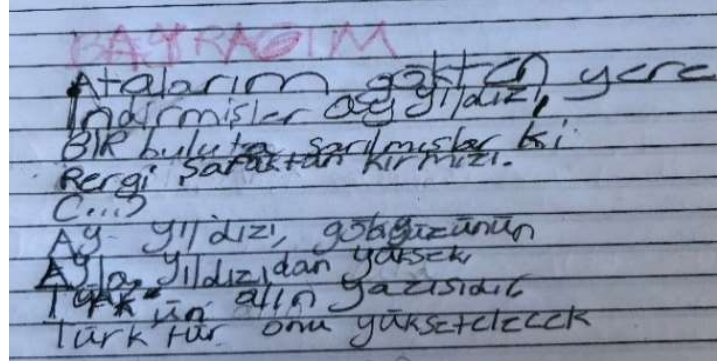 BAYRAĞIM
Atalarım gökten yere
İndirmişler ay yıldızı,
BİR buluta sarılmışlar ki
Rergi şafaktan kırmızı.
(...)
Ay yıldızı, gökyüzünün
Ayla, yıldızıdan yüksek,
Türk'ün alın yazısıdır
Türktür onu yükseltelecek